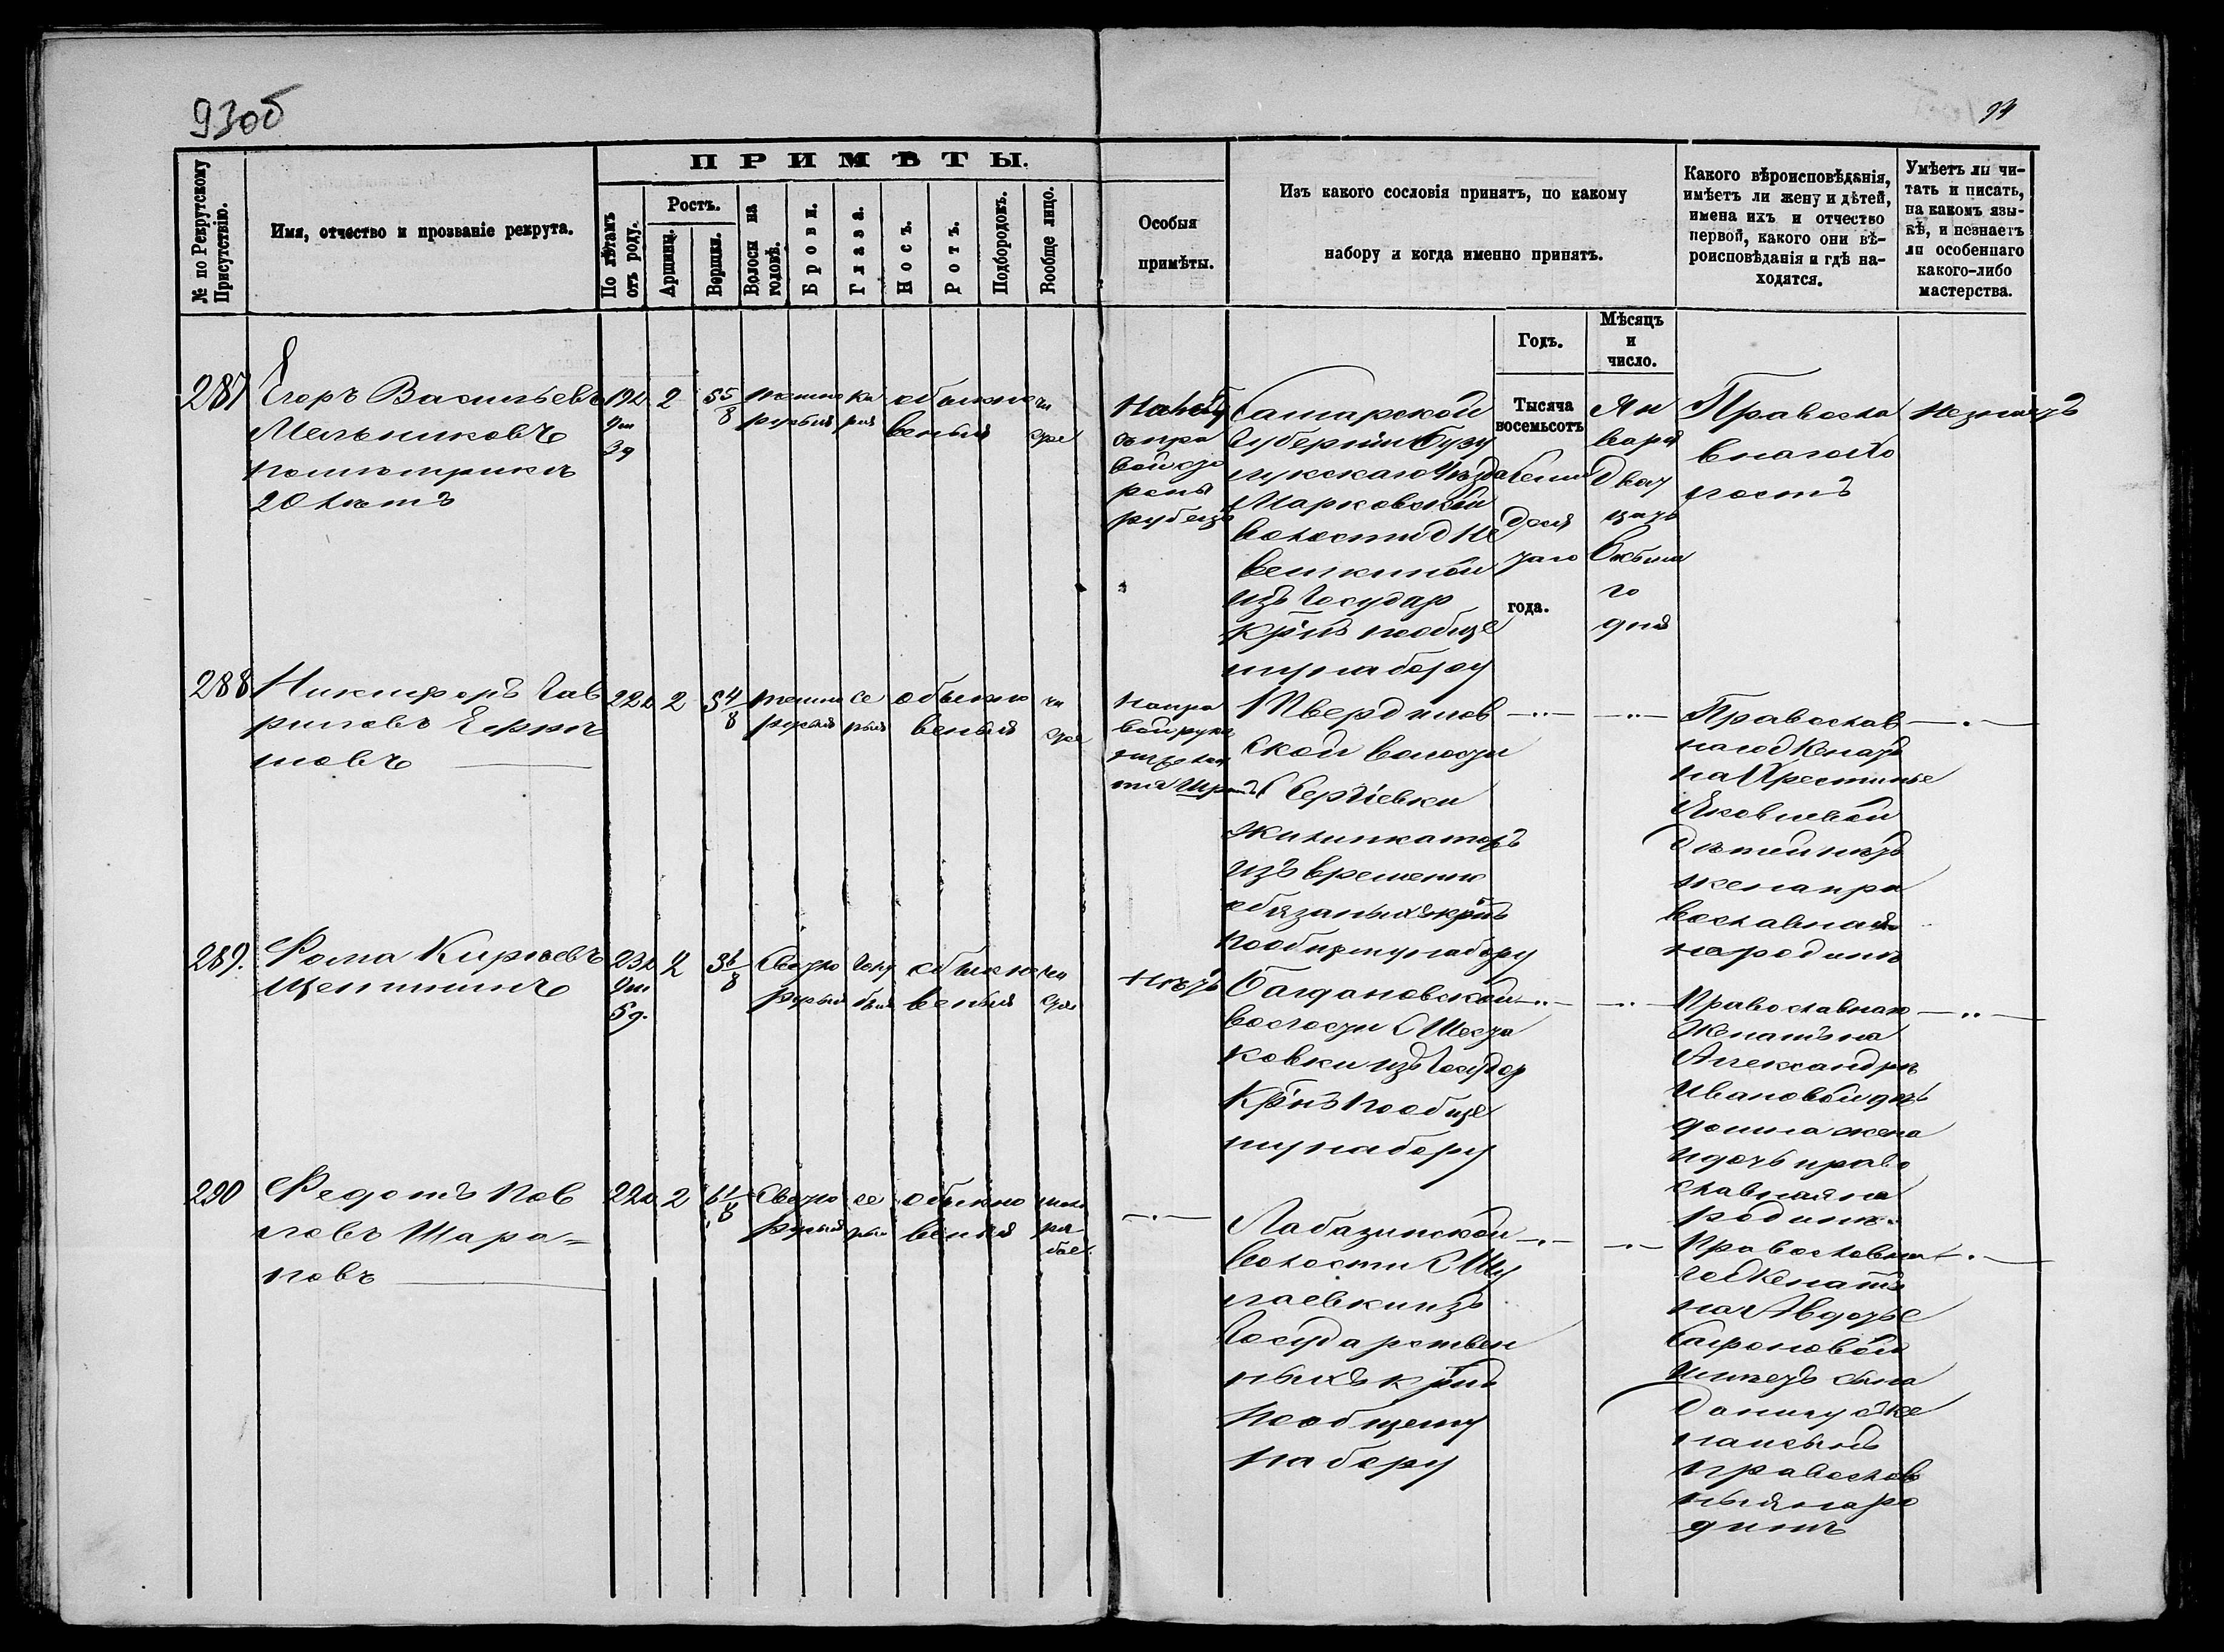 93об
94
ПРИМѢТЫ.
№ по Рекрутскому Присутствію.
Имя, отчество и прозваніе рекрута.
По лѣтамъ отъ роду.
Ростъ.
Аршины.
Вершки.
Волосы на головѣ.
Брови.
Глаза.
Носъ.
Ротъ.
Подбородокъ.
Вообще лицо.
Особыя
примѣты.
Изъ какого сословія принятъ, по какому
набору и когда именно принятъ.
Какого вѣроисповѣданія,
имѣетъ ли жену и дѣтей,
имена ихъ и отчество
первой, какого они вѣ-
роисповѣданія и гдѣ на-
ходятся.
Умѣетъ ли чи-
тать и писать,
на какомъ язы-
кѣ, и незнаетъ
ли особеннаго
какого-либо
мастерства.
Годъ.
Мѣсяцъ
и
число.
287
Егоръ Васильевъ
Мельниковъ
20 лѣтъ
19л
9м
3д
2
5 5/8
темно
русыя
ка
рія
обыкно
веныя
чи
стое
На лбу
съ пра
вой сто
роны
рубецъ
Самарской
Губерніи Бузу
лукскаго Уѣзда
Марковской
волости д Не
вешкиной
изъ Государ
кр̃нъ пообще
му набору
Тысяча
восемьсотъ
семи
деся
таго
года.
Ян
варя
Двад
цать
Восьма
го
дня
Правосла
внаго Хо
лостъ
незнаетъ
288
Никифоръ Гав
риловъ Ефри
мовъ
22л
2
5 4/8
темно
русыя
се
рыя
обыкно
веныя
чи
стое
На пра
вой рукѣ
Твердилов
ской волости
С Сергіевки
изъ временно
обязаныхъ кр̃нъ
пообщему набору
Православ
наго Женатъ
на Хрестинье
Яковлевой
дѣтей нѣтъ
жена пра
вославная
народинѣ
289.
Фома Кирѣевъ
Щепининъ
23л
9м
5д.
2
3 6/8
Свѣтло
русыя
Голу
быя
обыкно
веныя
чи
стое
Нѣтъ
Багдановской
волости С Шеста
ковки изъ Государ
Кр̃нъ пообще
му набору
Православнаго
Женатъ на
Александрѣ
Ивановой дочь
домна жена
и дочь право
славная на
родинѣ.
290
Федотъ Пав
ловъ Шара=
повъ
22л
2
6 1/8
Свѣтло
русыя
се
рыя
обыкно
веныя
мало
ря
бое
Лабазинской
волости С Шу
лаевки изъ
Государствен
ныхъ кр̃нъ
Пообщему
набору
Православна
го Женатъ
на Авдотье
Сафоновой
имѣетъ сына
Данилу Же
на и сынъ
православ
ныя наро
динѣ